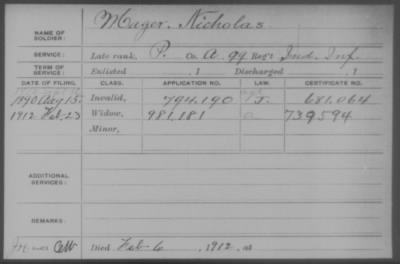 Mager, Nicholas
NAME OF SOLDIER:
SERVICE: Late rank, P. Co. A. 99 Reg't Ind. Inf.
TERM OF SERVICE: Enlisted , 1 Discharged , 1
DATE OF FILING. CLASS. APPLICATION NO. LAW. CERTIFICATE NO.
1890 Aug 15. Invalid, 794.190 J. 681.064
1912 Feb-23 Widow, 981,181 739594
Minor,
ADDITIONAL SERVICES:
REMARKS:
Died Feb 6, 1912, at